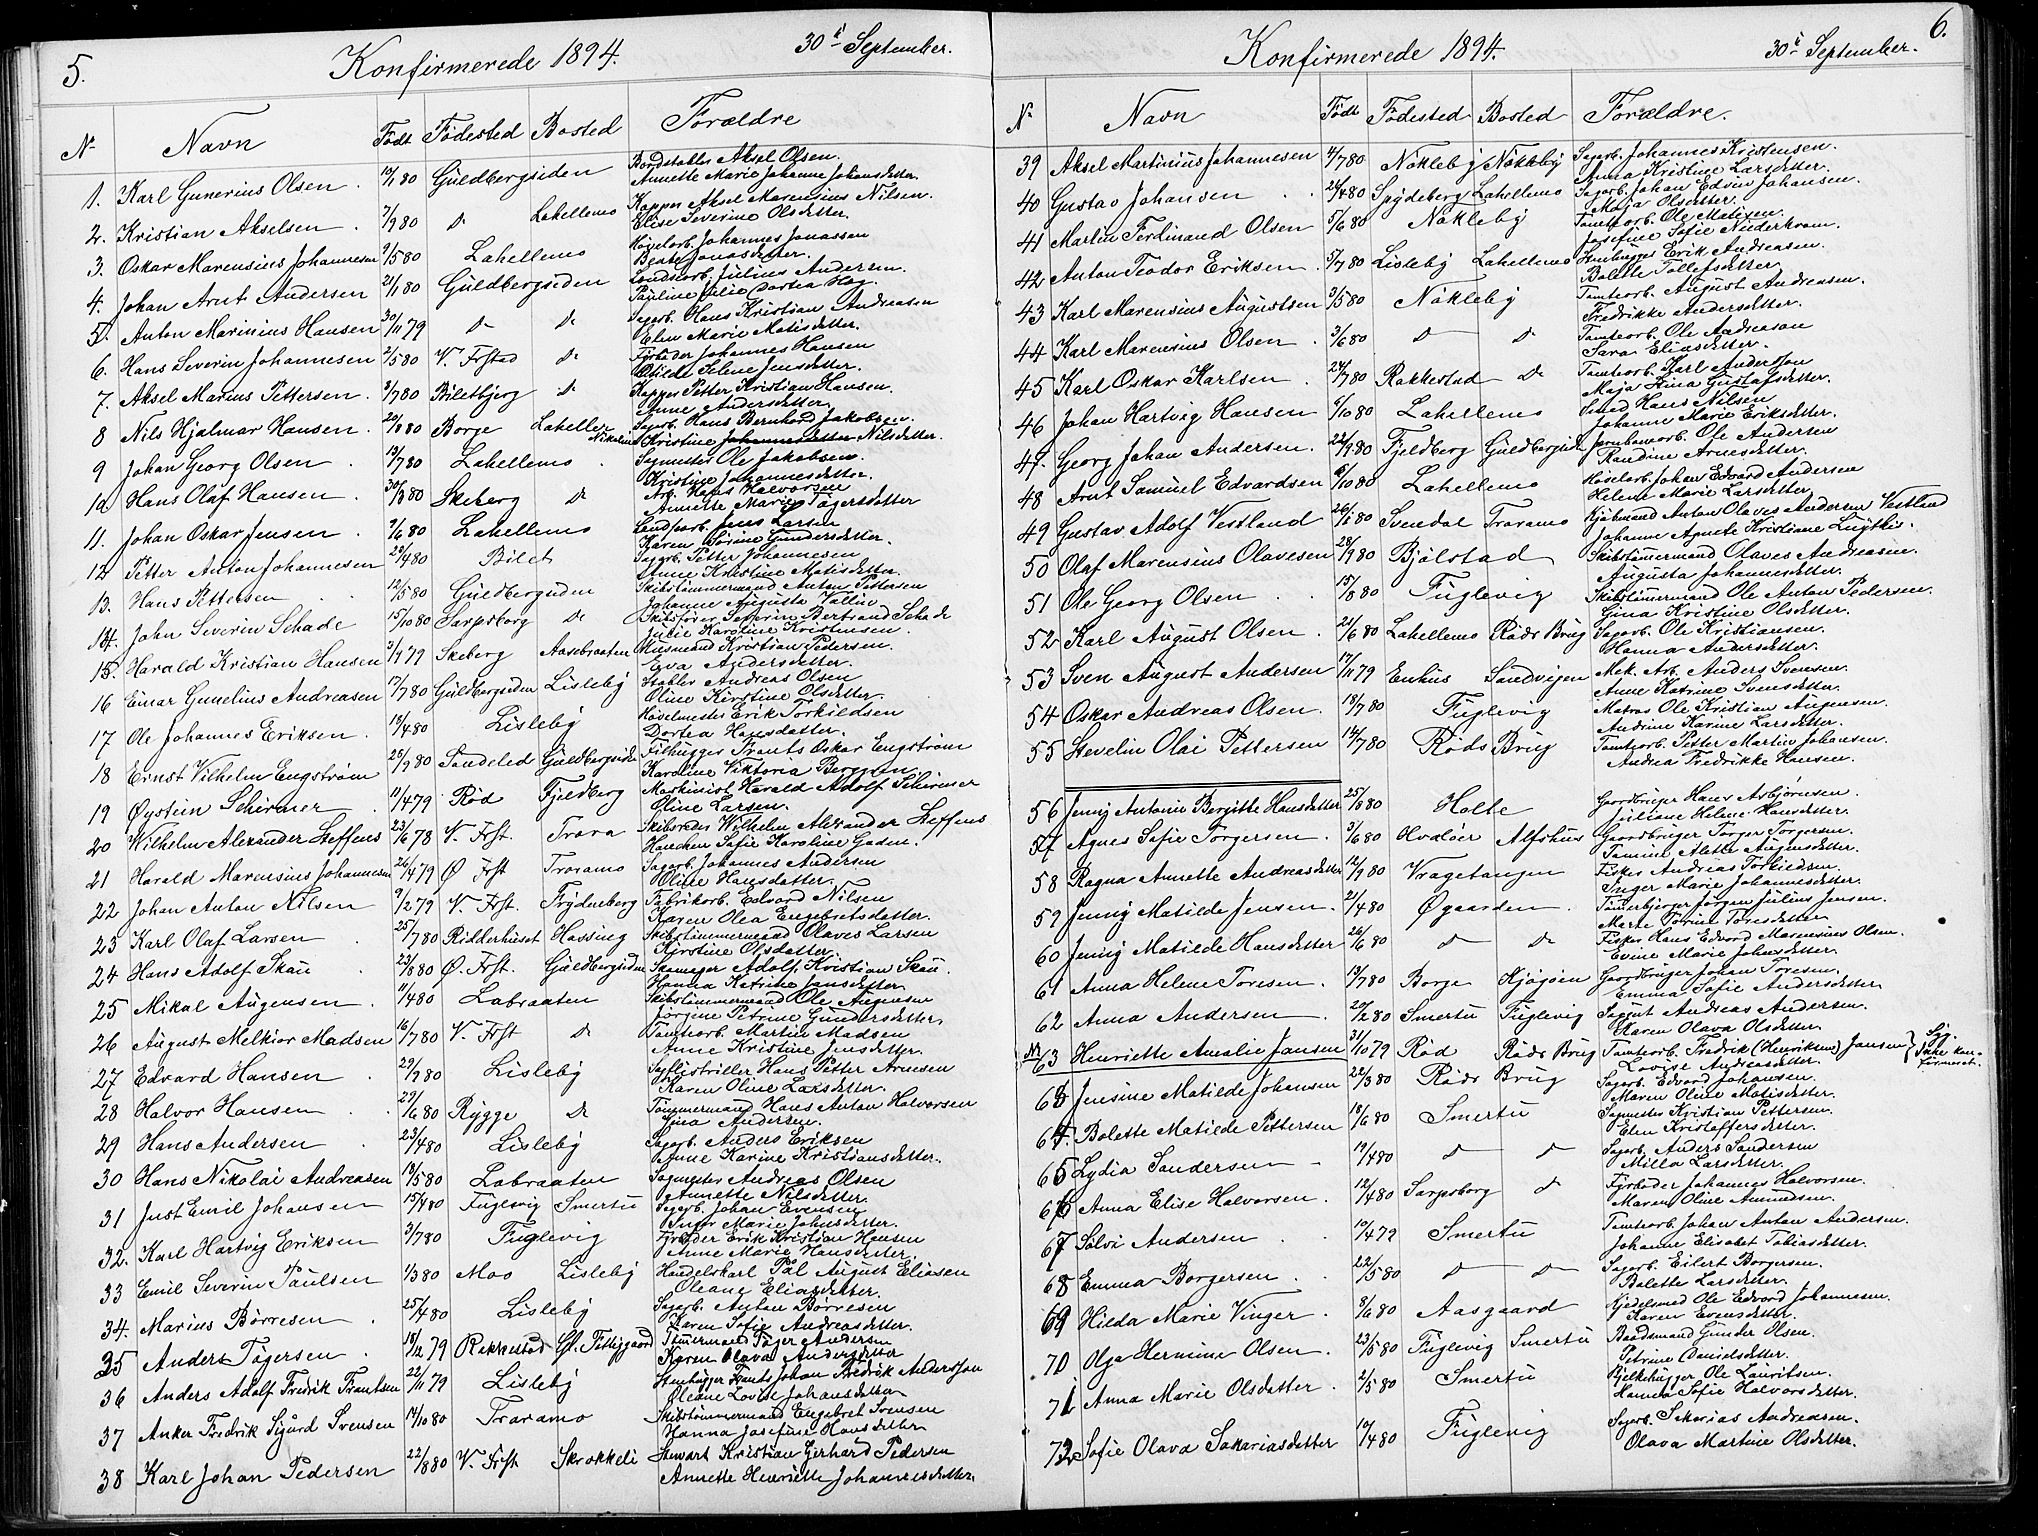 5.
Konfirmerede 1894.
30te September.
No Navn Født Fødested Bosted Forældre
1. Karl Gunerius Olsen. 13/1 80 Guldbergsiden Bordstabler Aksel Olsen.
Annette Marie Johanne Johansdatter.
2. Kristian Akselsen. 7/9 80 do Lahellemo Kapper Aksel Marensius Nilsen.
Elise Severine Olsdatter.
3. Oskar Marensius Johannesen 9/5 80 Lahellemo Høvelarb. Johannes Jonassen
Berte Jonasdatter.
4. Johan Arnt Andersen 21/1 80 Guldbergsiden Julius Andersen.
Pauline Julie Dortea Hag.
5. Anton Marinius Hansen 30/11 79 do do Sagarb. Hans Kristian Andreasen
Elen Marie Matisdatter.
6. Hans Severin Johannesen 2/5 80 V. Frstad do Fyrbøder Johannes Hansen
Selene Jensdatter.
7. Aksel Marius Pettersen. 3/7 80 Biletbjerg do Kapper Petter Kristian Hansen.
Anne Andersdatter
8 Nils Hjalmar Hansen. 20/11 80 Borge Lahellen Sagarb. Hans Bernhard Jakobsen.
Nikoline Kristine Nilsdatter.
9 Johan Georg Olsen. 13/7 80 Lahellemo. Sagmester Ole Jakobsen.
Kristine Johannesdatter.
10 Hans Olaf Hansen. 30/3 80 Skeberg do Arb. Hans Halvorsen
Annette Marie Tøgersdatter
11. Johan Oskar Jensen. 9/6 80 Lahellemo Jens Larsen
Karen Sørine Gundersdatter.
12 Petter Anton Johannesen 29/4 80 Bilet Sagarb. Petter Johannesen
Anne Kristine Matisdatter.
13. Hans Pettersen. 12/5 80 Guldbergsiden Skibstømmermand Anton Pettersen
Johanne Augusta Vallin
14. John Severin Schade 15/10 80 Sarpsborg do Skibsfører Severin Bertrand Schade
Julie Karoline Kristensen.
15. Harald Kristian Hansen 3/9 79 Skeberg Aasebraaten Husmand Kristian Pedersen.
Eva Andersdatter.
16 Einar Gunelius Andreasen 17/7 80 Guldbergsiden Lisleby Stabler Andreas Olsen
Oline Kirstine Olsdatter.
17 Ole Johannes Eriksen. 18/4 80 Lisleby Høvelmester Erik Torkildsen
Dortea Hansdatter.
18 Ernst Vilhelm Engstrøm 25/9 80 Søndeled Guldbergsiden Filhugger Frants Oskar Engstrøm
Karoline Viktoria Berggren
19 Øystein Schirmer. 11/4 79 Rød Fjeldberg Maskinist Harald Adolf Schirmer
Oline Larsen.
20 Wilhelm Alexander Steffens 23/6 78 V. Frst. Trara Skibsreder Wilhelm Alexander Steffens
Hanchen Sofie Karoline Gaden.
21 Harald Marensius Johannesen 26/4 79 Ø Frst Traramo Sagarb. Johannes Andersen
Oline Hansdatter.
22 Johan Anton Nilsen 9/2 79 V. Frst. Frydenberg Fabrikarb. Edvard Nilsen
Karen Olea Engebretsdatter.
23 Karl Olaf Larsen. 25/7 80 Ridderhuset Hassing Skibstømmermand Olaves Larsen
Kjirstine Olsdatter.
24 Hans Adolf Skau 23/8 80 Ø. Frst. Guldbergsiden Skomager Adolf Kristian Skau.
Hanna Katrine Jansdatter
25 Mikal Augensen. 11/4 80 Labraaten Skibstømmermand Ole Augensen
Jørgine Petrine Gundersdatter,
26 August Melkior Madsen 16/7 80 V. Frst do Tømtearb. Martin Madsen
Anne Kristine Jensdatter.
27 Edvard Hansen. 29/9 80 Lisleby Hans Petter Arnesen
Karen Oline Larsdatter.
28 Halvor Hansen. 29/6 80 Rygge do Tømmermand Hans Anton Halvorsen
Gina Andersen.
29 Hans Andersen 23/4 80 Lisleby Sagarb. Anders Eriksen
Anne Karine Kristiansdatter.
30 Hans Nikolai Andreasen 18/5 80 Labraaten Sagmester Andreas Olsen
Annette Nilsdatter.
31 Just Emil Johansen 15/4 80 Fuglevig Smertu Sagarb. Johan Evensen
Inger Marie Johnsdatter.
32. Karl Hartvig Eriksen 3/7 80 Fuglevig Fyrbøder Erik Kristian Hansen
Anne Marie Hansdatter.
33 Emil Severin Paulsen 1/3 80 Mos Lisleby Handelskarl Pål August Eliasen
Oleane Eliasdatter.
34. Marius Børresen. 25/4 80 Lisleby Sagarb. Anton Børresen
Karen Sofie Andreasdatter.
35 Anders Tøgersen. 18/12 79 Rakkestad Tømmermand Tøger Andersen
Karen Olava Andersdatter
36 Anders Adolf Fredrik Frantsen 22/11 79 Lisleby Stenhugger Frants Johan Fredrik Andersson
Oleane Lovise Johansdatter
37 Anker Fredrik Sigurd Svensen 14/10 80 Traramo Skibstømmermand Engebret Svensen
Hanna Josefine Hansdatter
38 Karl Johan Pedersen 22/8 80 V. Frst Skrokkeli Stewart Kristian Gerhard Pedersen
Annette Henriette Johannesdatter.
6.
Konfirmerede 1894.
30te September.
No Navn Født Fødested Bosted Forældre.
39 Aksel Martinius Johannesen 4/7 80 Nøkleby Nøkleby Sagarb. Johannes Kristensen.
Anna Kristine Larsdatter.
40 Gustav Johansen. 24/4 80 Spydeberg Lahellemo Sagarb. Johan Edvin Johansen.
Maja Olsdatter.
41 Martin Ferdinand Olsen 5/6 80 Nøkleby Tømtearb. Ole Matisen.
Josefine Sofie Nuderkrom.
42 Anton Teodor Eriksen. 3/7 80 Lisleby Lahellemo Stenhugger Erik Andreasen.
Bolette Tollefsdatter
43 Karl Marensius Augustsen 3/5 80 Nøkleby Tømtearb. August Andreasen.
Fredrikke Andersdatter.
44 Karl Marensius Olsen. 3/6 80 do do Tømtearb. Ole Andreasen
Sara Eliasdatter.
45 Karl Oskar Karlsen. 24/7 80 Rakkestad do Tømtearb. Karl Andersson
Maja Stina Gustafsdatter.
46 Johan Hartvig Hansen 6/10 80 Lahellemo Smed Hans Nilsen
Johanne Marie Eriksdatter.
47. Georg Johan Andersen. 22/9 80 Fjeldberg Guldbergsiden Jernbanearb. Ole Andersen
Randine Arnesdatter.
48 Arnt Samuel Edvardsen 6/10 80 Lahellemo Høvelarb. Johan Edvard Andersen
Helene Marie Larsdatter.
49 Gustav Adolf Vestland 26/1 80 Svendal Traramo Anton Olaves Andersen Vestland
Johanne Agnete Kristiane
50 Olaf Marensius Olavesen 28/9 80 Bjølstad Skibstømmermand Olaves Andreasen.
Augusta Johannesdatter.
51 Ole Georg Olsen. 15/8 80 Fuglevig Skibstømmermand Ole Anton Pedersen.
Gina Kristine Olsdatter.
52 Karl August Olsen. 21/6 80 Lahellemo Røds Brug Sagarb. Ole Kristiansen.
Hanna Andersdatter.
53 Sven August Andersen 17/11 79 Enhus Sandvigen Mek. Arb. Anders Svensen.
Anne Katrine Svensdatter.
54 Oskar Andreas Olsen. 18/7 80 Fuglevig Matros Ole Kristian Augensen.
Andrine Karine Larsdatter.
55 Stevelin Olai Pettersen 14/7 80 Røds Brug Tømtearb. Petter Martin Johansen.
Andrea Fredrikke Hansen.
56 Jenny Antonie Bergitte Hansdatter 25/8 80 Holte Gaardbruger Hans Asbjørnsen.
Juliane Helene Hansdatter.
57 Agnes Sofie Torgersen. 3/6 80 Hvaløer Alfshus Gaardbruger Torger Torgersen.
Tomine Alette Augensdatter.
58 Ragna Annette Andreasdatter 12/9 80 Vragetangen Fisker Andreas Torkildsen.
Inger Marie Johannesdatter.
59 Jenny Matilde Jensen. 21/4 80 Øgaarden. Tømmerbjerger Jørgen Julius Jensen.
Marte Torine Toresdatter.
60 Jenny Matilde Hansdatter 26/6 80 do do Fisker Hans Edvard Marensius Olsen.
Evine Marie Johnsdatter.
61 Anna Helene Toresen. 13/7 80 Borge Kjøgøen Gaardbruger Johan Toresen.
Emma Sofie Andersdatter
62 Anna Andersen. 20/2 80 Smertu Fuglevig Andreas Andersen.
Karen Olava Olsdatter.
63 Henriette Amalie Jansen 31/10 79 Rød Røds Brug Tømtearb. Fredrik (Henriksen) Jansen } Syg. Ikke konfirmeret.
Lovise Andreasdatter.
63 Jensine Matilde Johansen 22/3 80 Røds Brug Sagarb. Edvard Johansen.
Maren Oline Matisdatter.
64. Bolette Matilde Pettersen 18/6 80 Smertu Sagmester Kristian Pettersen.
Elen Kristoffersdatter.
65 Lydia Sandersen 19/4 80 do do Sagarb. Anders Sandersen
Milla Larsdatter.
66 Anna Elise Halvorsen. 12/4 80 Sarpsborg do Fyrbøder Johannes Halvorsen.
Maren Oline Amundsen.
67 Sølvi Andersen. 10/4 79 Smertu Tømtearb. Johan Anton Andersen.
Johanne Elisabet Tobiasdatter.
68 Emma Borgersen. 22/5 80 do do Sagarb. Eilert Borgersen.
Bolette Larsdatter.
69 Hilda Marie Vinger. 8/6 80 Aasgaard Kjedelsmed Ole Edvard Johannesen.
Karen Evensdatter.
70 Olga Hermine Olsen. 23/5 80 Fuglevig Smertu Baadsmand Gunder Olsen.
Petrine Danielsdatter.
71 Anna Marie Olsdatter. 2/5 80 Smertu Bjelkehugger Ole Lauritsen.
Hanna Sofie Halvorsdatter.
72 Sofie Olava Sakariasdatter 10/4 80 Fuglevig Sagarb. Sakarias Andreasen.
Olava Martine Olsdatter.